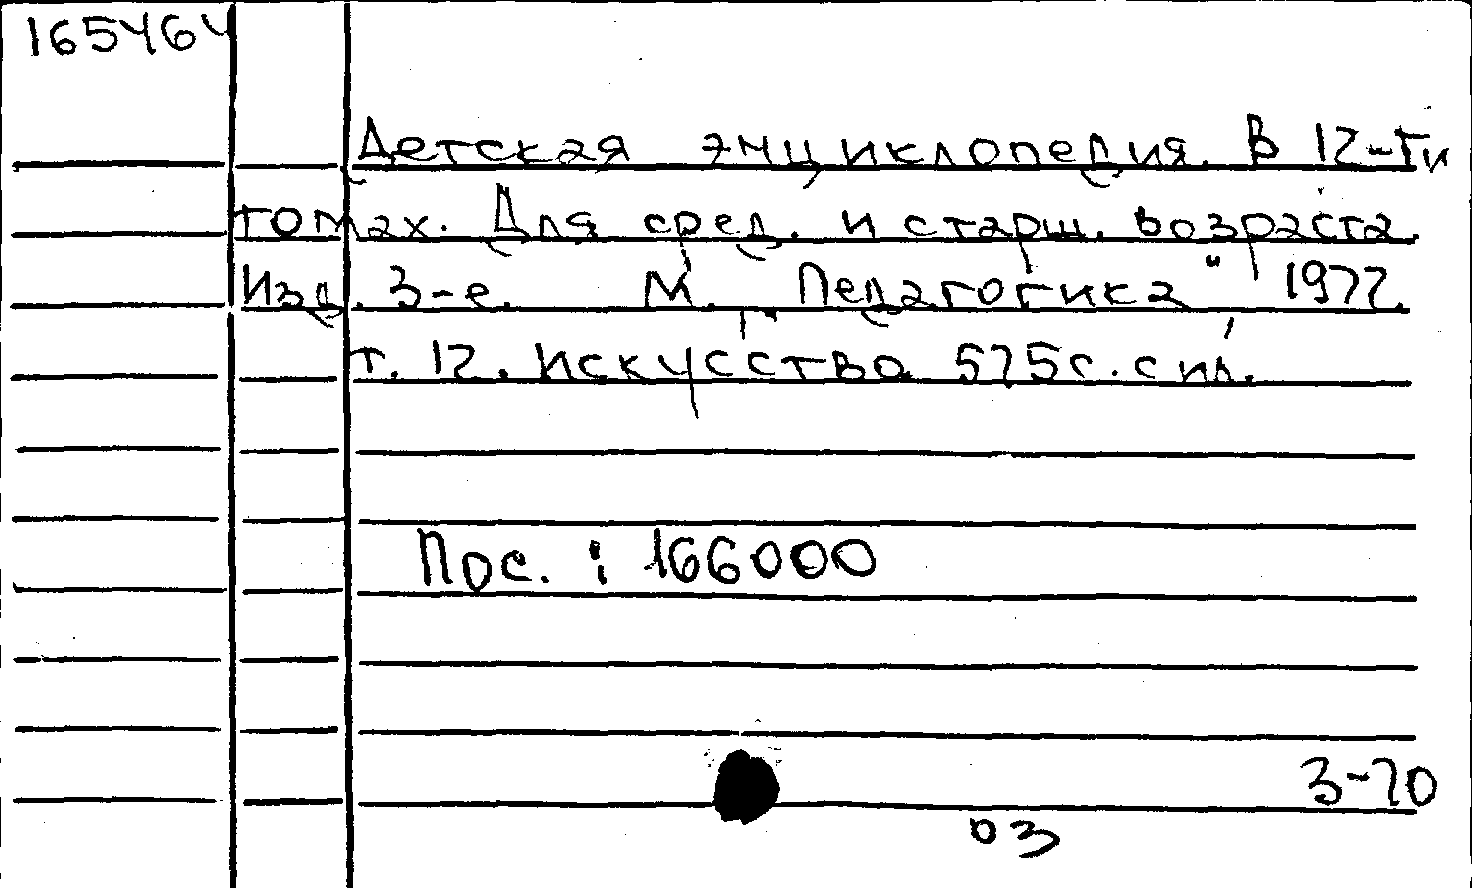 165464
Детская энциклопедия. В 12-ти
томах. Для сред. и старш. возраста.
Изд. 3-е. М. „Педагогика" 1977.
т. 12. Искусство. 575 с. с ил.
Пос. : 166000
3-70
03